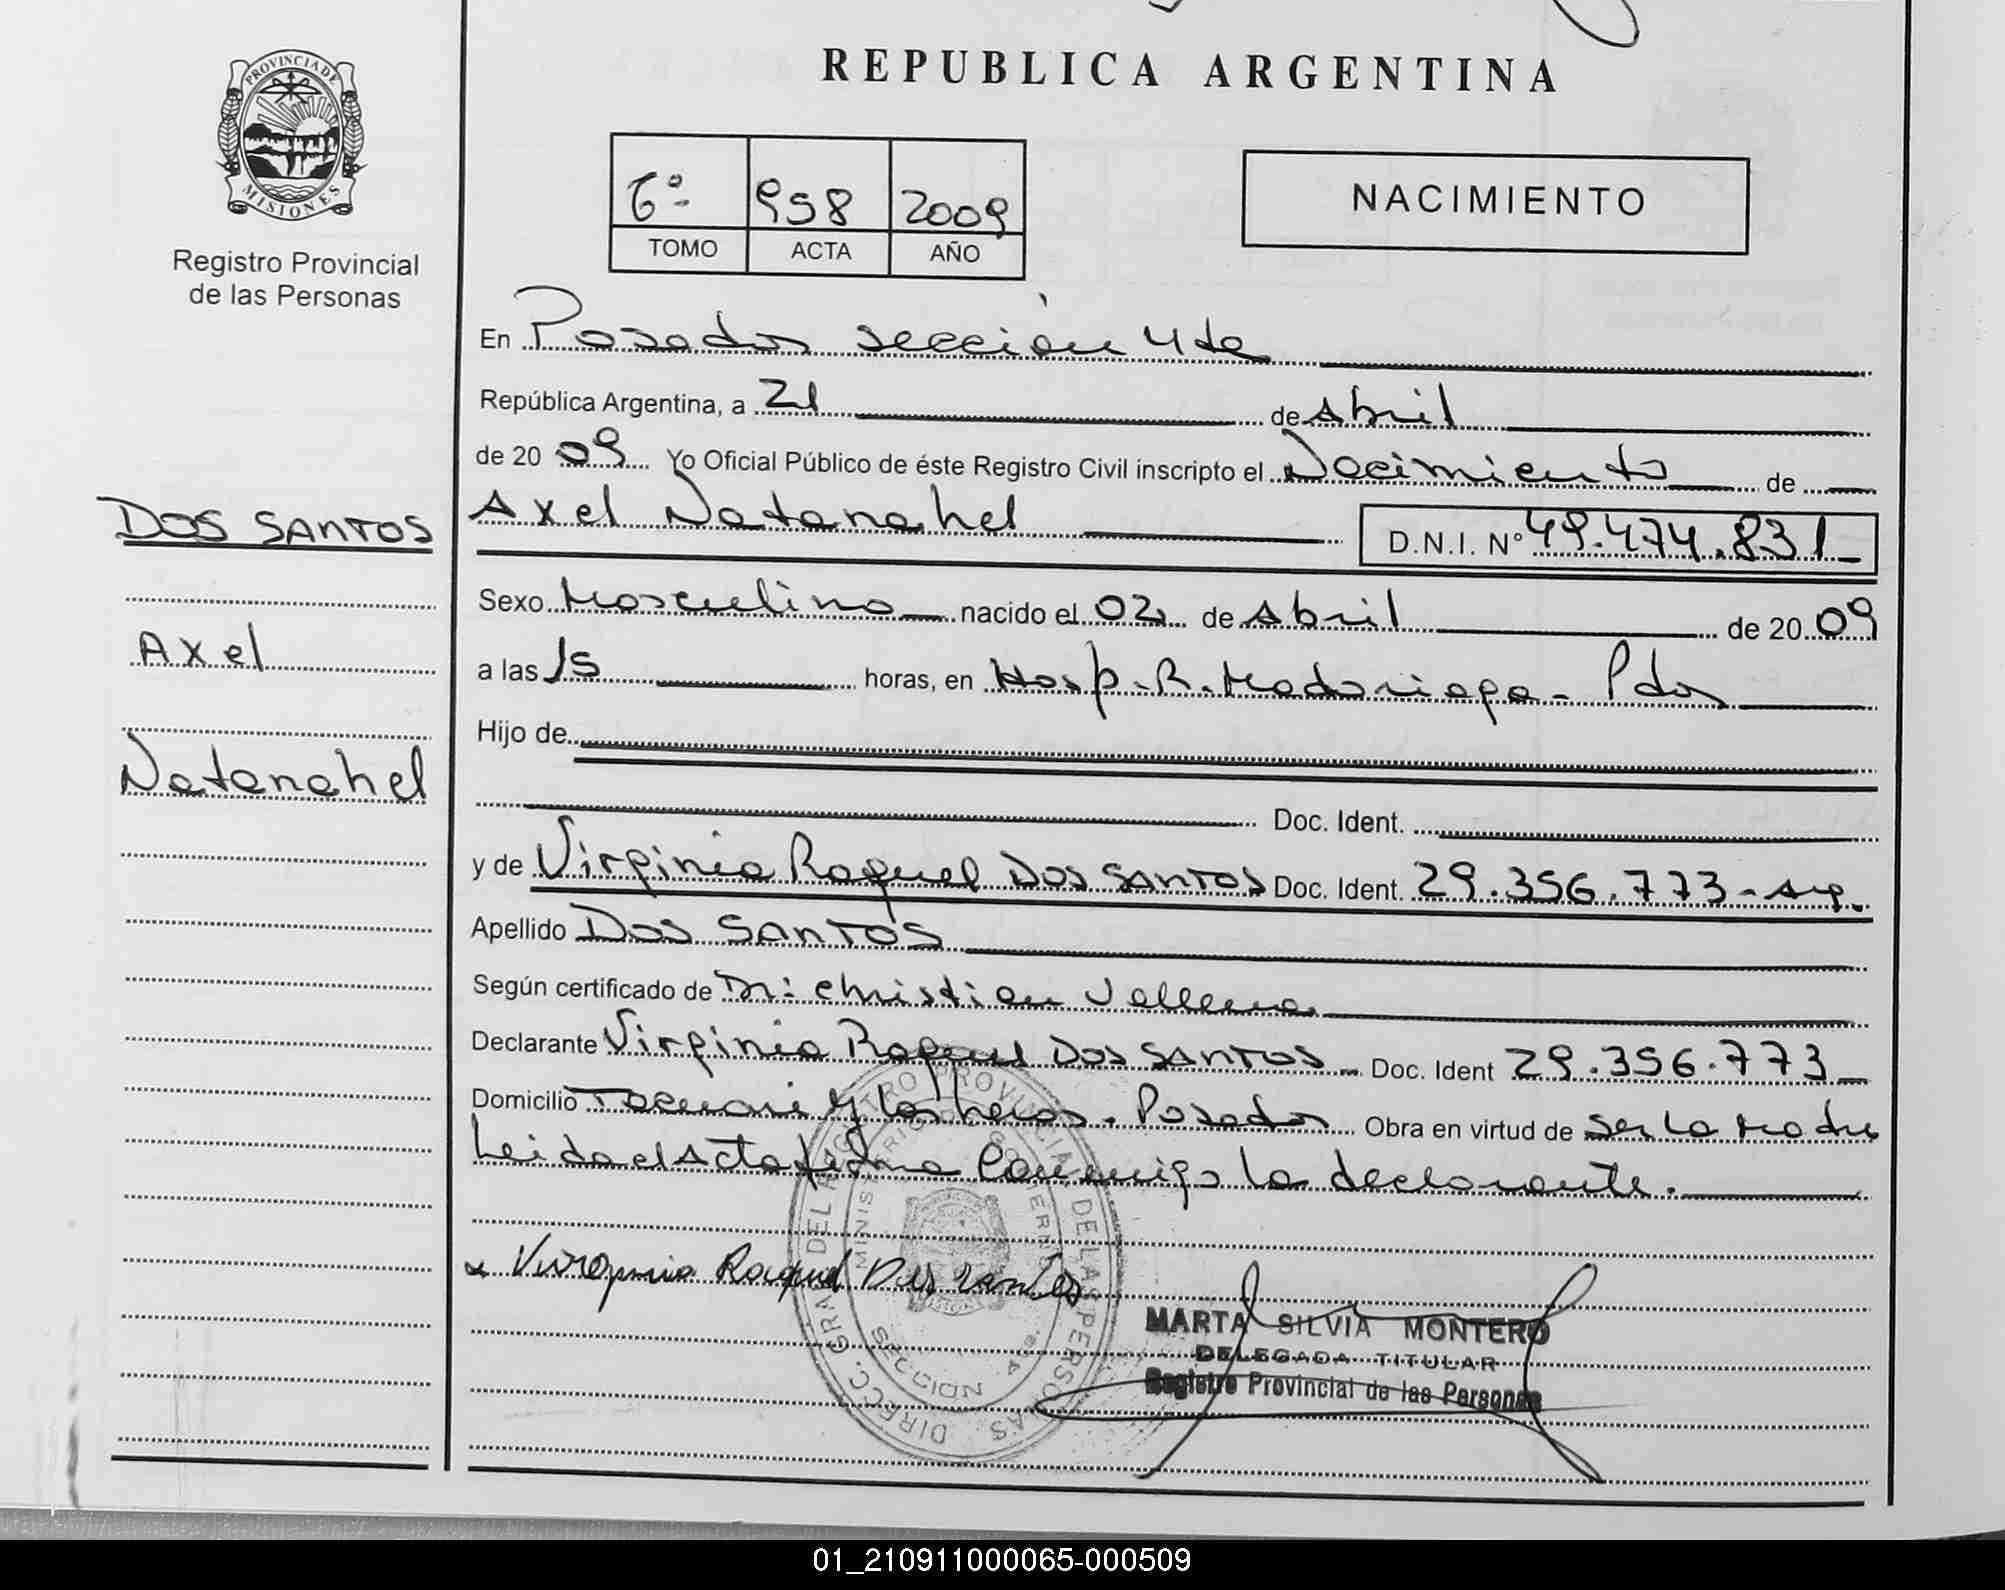 REPUBLICA ARGENTINA
PROVINCIA DE MISIONES
Registro Provincial
de las Personas
6º 958 2009
TOMO ACTA AÑO
NACIMIENTO
En Posadas sección 4ta
República Argentina, a 21 de Abril
de 20 09 Yo Oficial Público de éste Registro Civil inscripto el Nacimiento de
DOS SANTOS
Axel
Natanahel
Axel Natanahel D.N.I. Nº 49.474.831
Sexo Masculino nacido el 02 de Abril de 20 09
a las 15 horas, en Hosp. R. Madariaga - Pdas
Hijo de
Doc. Ident.
y de Virginia Raquel Dos SANTOS Doc. Ident. 29.356.773 - Arg.
Apellido Dos SANTOS
Según certificado de Dr: Christian
Declarante Virginia Raquel Dos SANTOS Doc. Ident 29.356.773
Domicilio Tacuari y Las heras. Posadas Obra en virtud de ser la Madre
Leida el Acta firma Conmigo la declarante.
x Virginia Raquel Dos Santos
DIRECC. GRAL. DEL REGISTRO PROVINCIAL DE LAS PERSONAS
MINISTERIO DE GOBIERNO
SECCION 4ta.
MARTA SILVIA MONTERO
DELEGADA TITULAR
Registro Provincial de las Personas
01_210911000065-000509